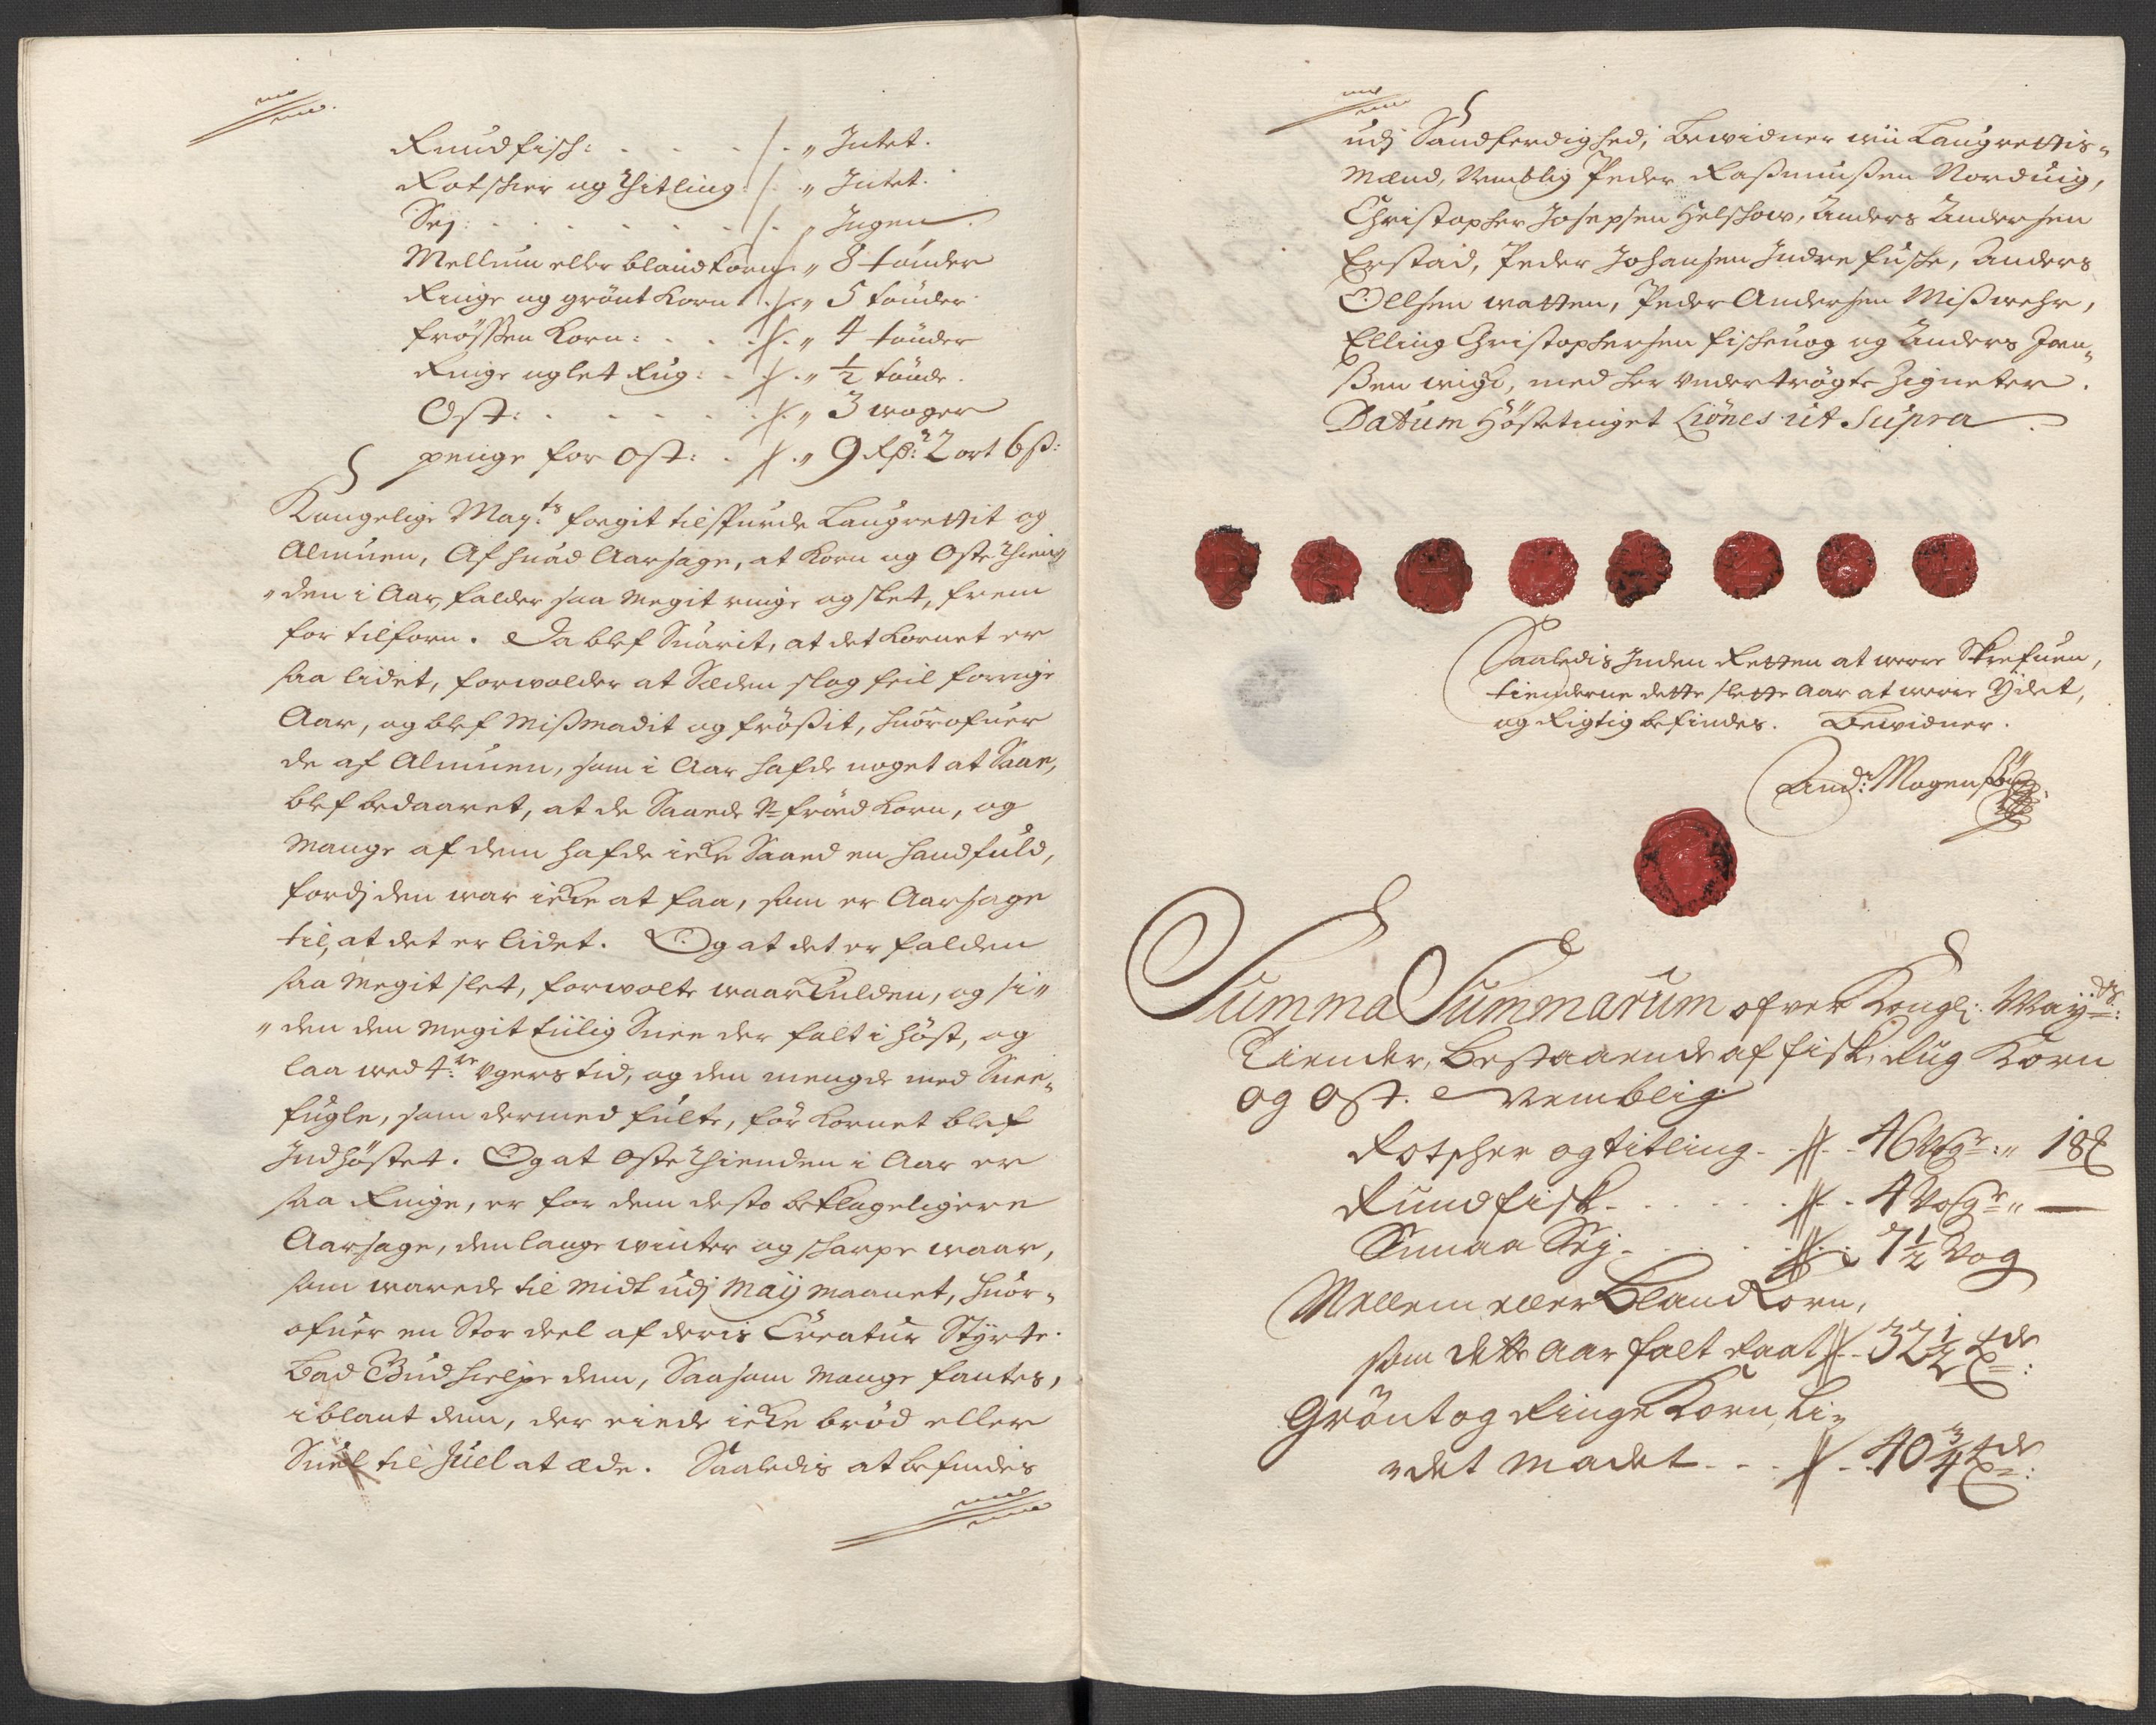 Rundfisch: . . . . /. „ Intet.
Rotscher og Thitling: /. „ Intet.
Sej: . . . . . . /. „ Ingen.
Mellum eller blandkorn /. „ 8 tønder
Ringe og grønt Korn /. „ 5 tønder
frøssen Korn: . . . /. „ 4 tønder
Ringe og let Rug: . /. „ ½ tønde.
Ost: . . . . . . /. „ 3 woger
penge for ost: . /. „ 9 Rß: 2 ort 6 ß:
Kongelige May:ts fogit tilspurde Laugrettit og
Almuen, Af huad Aarsage, at Korn og Oste Thien„
„den i Aar, falder saa Megit ringe og slet, frem
for tilforn. Da blef Suarit, at det Kornet er
saa lidet, forwolder at Sæden slog feil forrige
Aar, og blef Mißmadit og frößit, huorofuer
de af Almuen, som i Aar hafde noget at Saae,
blef bedaaret, at de Saaede V=frøed Korn, og
Mange af dem hafde icke Saaed en handfuld,
fordj den war icke at faa, som er Aarsage
til, at det er lidet. Og at det er falden
saa Megit slet, forwolte waarkulden, og si„
„den den Megit tiilig Snee der falt i høst, og
laa wed 4:re Vgers tid, og den mengde med Snee„
fugle, som dermed fulte, før Kornet blef
Indhøstet. Og at Oste Thienden i Aar er
saa Ringe, er for dem desto beklageligere
Aarsage, den lange winter og skarpe waar,
som warede til Midt udj Maij Maanet, huor„
ofuer en Stor deel af deris Creatur Styrte.
bad Gud hielpe dem, Saasom Mange fantes,
iblant dem, der eiede icke brød eller
Suel til Juel at æde. Saaledis at befindes
udj Sandferdighed, bewidner wii Laugrettis„
Mænd, Nemblig Peder Raßmußen Norduig,
Christopher Josepsen Helshow, Anders Andersen
Erstad, Peder Johansen Indre fuske, Anders
Ollsen watten, Peder Andersen Mißwehr,
Elling Christophersen fischeuog og Anders Jen„
ßen wigh, med her vndertrøgte Zigneter.
Datum Høstetinget Liønes ut Supra
Saaledis Inden Retten at were Skrefuen,
tienderne dette slette Aar at were Ydet,
og Rigtig befindes. Bewidner.
And: Mogens
Summa Summarum ofver Kongl: Maij:ds
Tiender, Bestaaende af fisk, Rug Korn
og Ost. Nemblig
Rotscher og titling. - 46 Wog: „ 18 ℔
Rundfisk . . . . - 4 Wog: „ —
Smaa Sej . . . . 7½ Vog
Mellem eller Bland Korn,
som dette Aar falt Raat - 32½ Tde:
Grønt og Ringe Korn, li„
„det Madet . . . - 40¾ Tde: